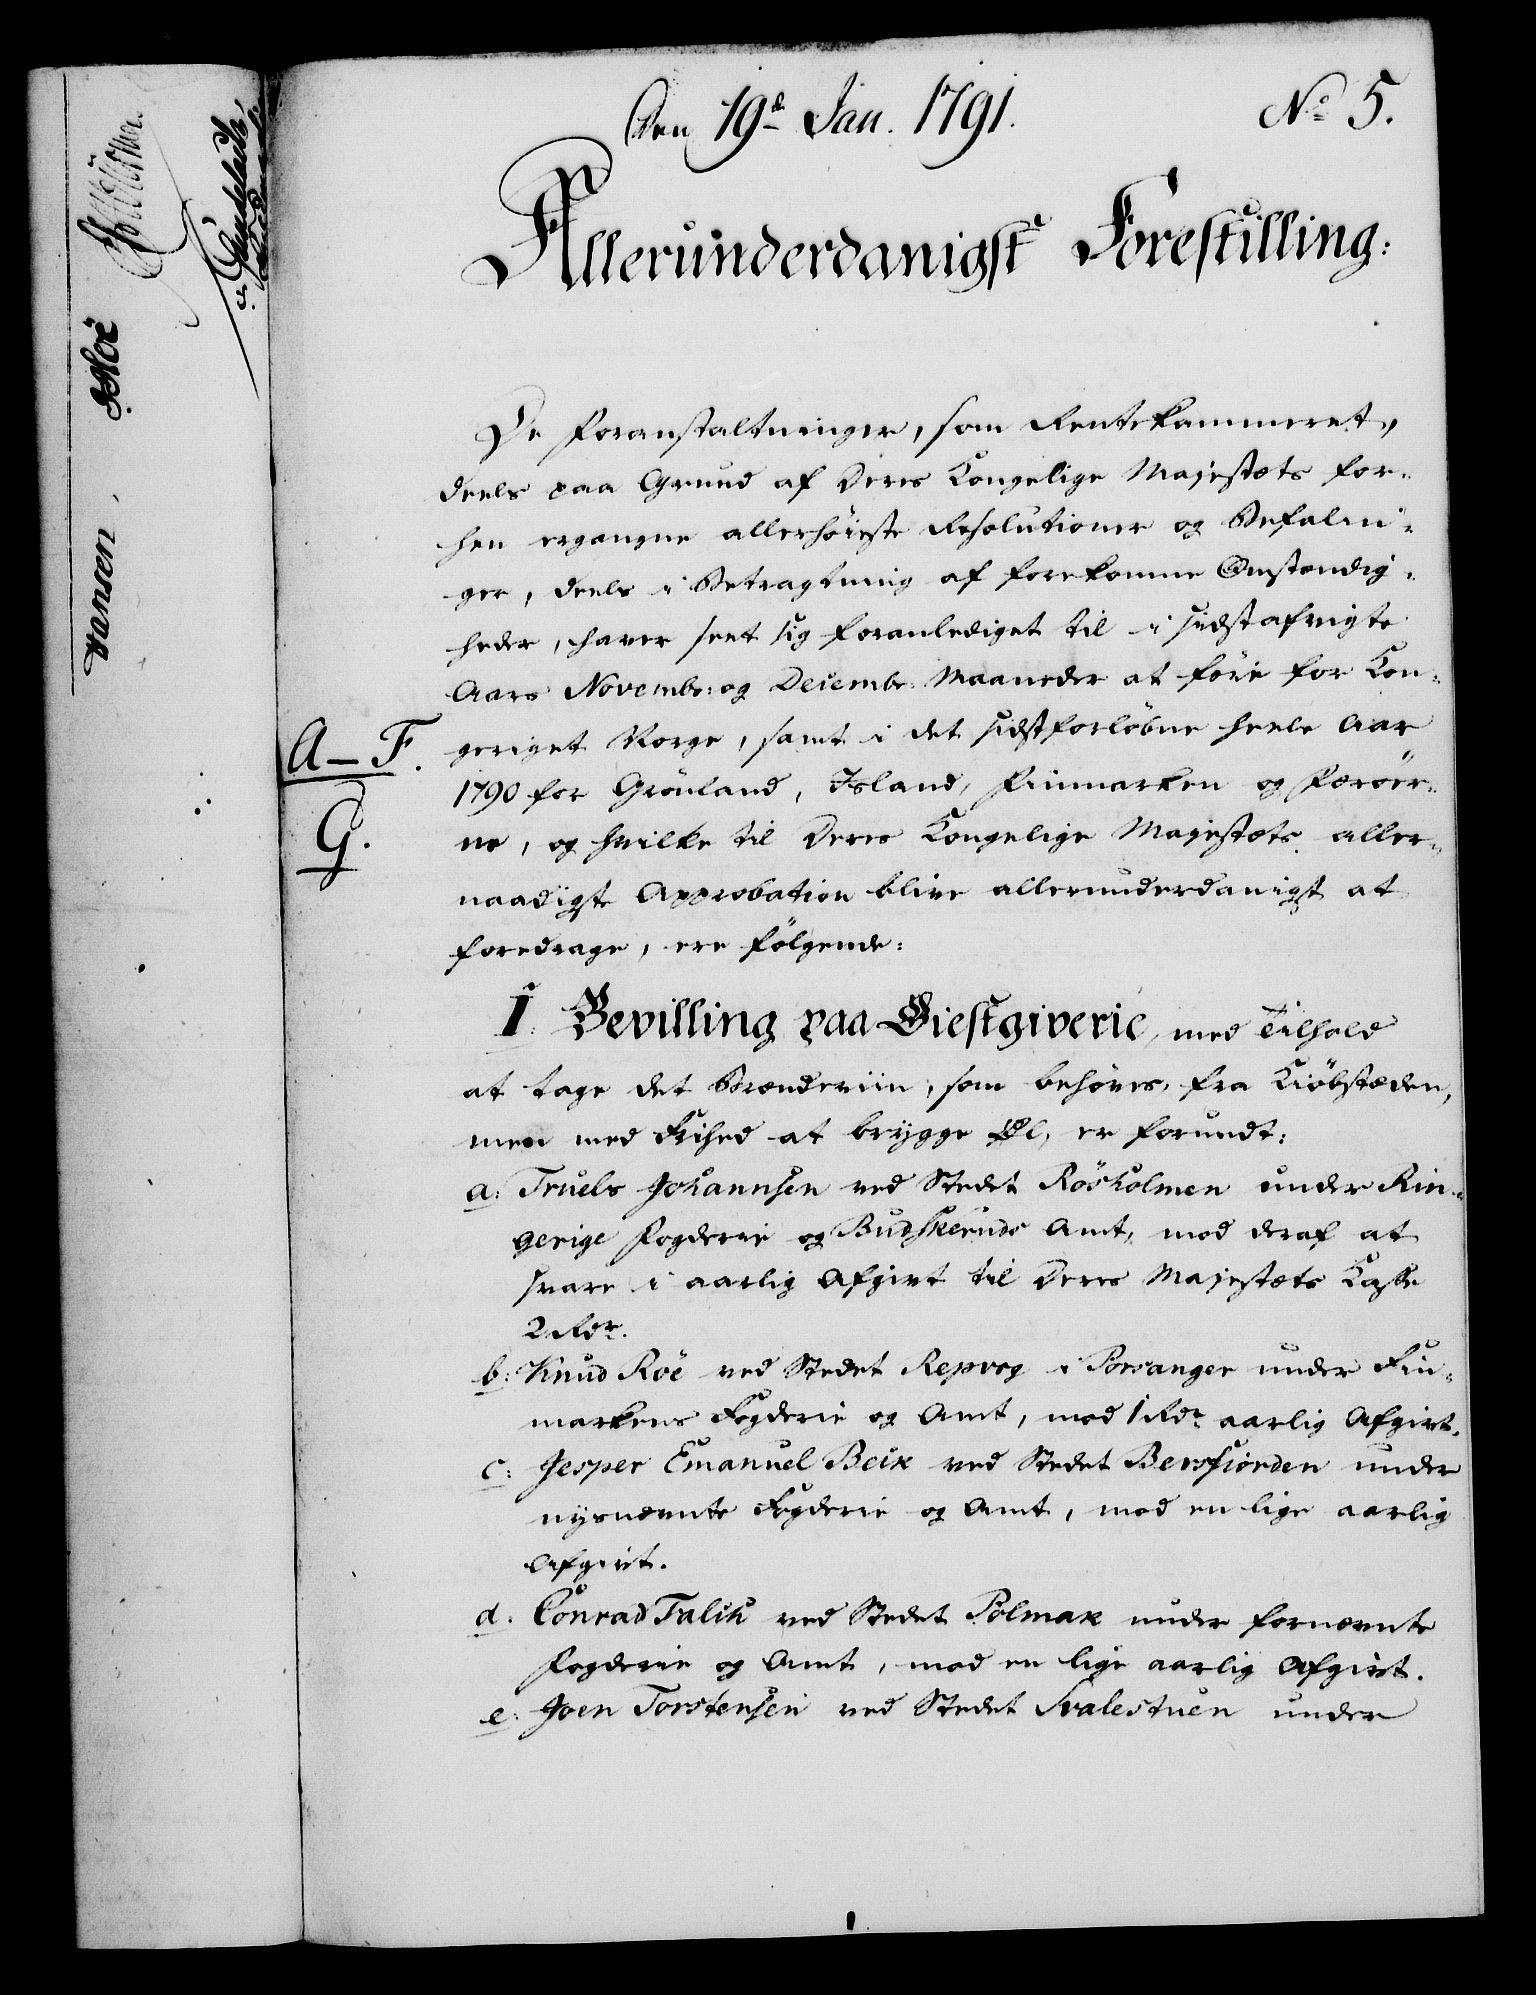 Den 19de Jan. 1791.
No 5.
Allerunderdanigst Forestilling:
De Foranstaltninger, som Rentekammeret,
deels paa Grund af Deres Kongelige Majestæts for-
hen ergangne allerhöieste Resolutioner og Befalin-
ger, deels i Betragtning af forekomne Omstændig-
heder, haver seet sig foranlediget til i sidstafvigte
Aars Novembr: og Decembr: Maaneder at föie for Kon-
A-F.
geriget Norge, samt i det sidstforløbne heele Aar
1790 for Grönland, Island, Finmarken og Færöer-
G.
ne, og hvilke til Deres Kongelige Majestæts aller-
naadigste Approbation blive allerunderdanigst at
foredrage, ere fölgende:
I. Bevilling paa Giestgiverie, med Tilhold
at tage det Brændeviin, som behöves, fra Kiöbstæden,
men med Frihed at brygge Øl, er forundt:
a: Truels Johannsen ved Stedet Rösholmen under Rin-
gerige Fogderie og Budskeruds Amt, mod deraf at
svare i aarlig Afgivt til Deres Majestæts Kasse
2 Rdr.
b: Knud Röe ved Stedet Repvog i Porsanger under Fin-
markens Fogderie og Amt, mod 1 Rdr aarlig Afgivt.
c: Jesper Emanuel Beik ved Stedet Bersfiorden under
nysnævnte Fogderie og Amt, mod en lige aarlig
Afgivt.
d. Conrad Falch ved Stedet Polmak under fornævnte
Fogderie og Amt, mod en lige aarlig Afgivt.
e: Joen Torstensen ved Stedet Svalestuen under
Hansen
Moë